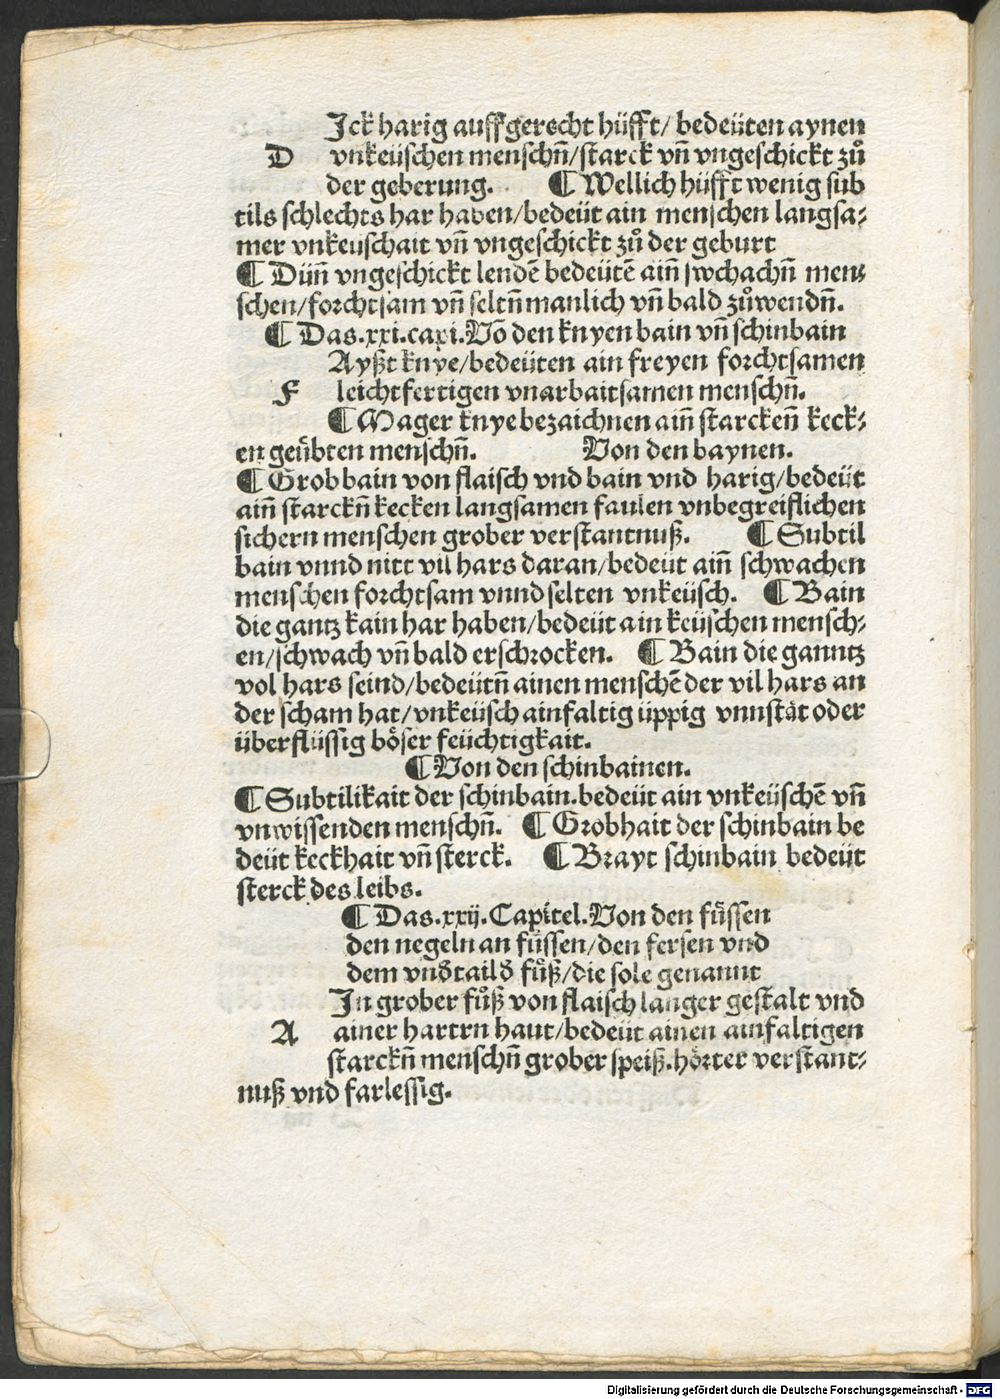 Jck harig auffgerecht hüfft/ bedeüten aynen
D vnkeüschen menschn̄/starck vn̄ vngeschickt zů
der geberung. ¶ Wellich hüfft wenig sub
tils schlechts har haben/bedeüt ain menschen langsa⸗
mer vnkeuschait vn̄ vngeschickt zů der geburt
¶ Dün̄ vngeschickt lendē bedeütē ain̄ swchachn̄ men⸗
schen/forchtsam vn̄ seltn̄ manlich vn̄ bald zůwendn̄.
¶ Das.xxi.capi.Vō den knyen bain vn̄ schinbain
Ayßt knye/bedeüten ain freyen forchtsamen
F leichtfertigen vnarbaitsamen menschn̄.
¶ Mager knye bezaichnen ain̄ starcken̄ keck⸗
en geübten menschn̄. Von den baynen.
¶ Grob bain von flaisch vnd bain vnd harig/bedeüt
ain̄ starckn̄ kecken langsamen faulen vnbegreiflichen
sichern menschen grober verstantnuß. ¶ Subtil
bain vnnd nitt vil hars daran/bedeüt ain̄ schwachen
menschen forchtsam vnnd selten vnkeüsch. ¶ Bain
die gantz kain har haben/bedeüt ain keüschen mensch⸗
en/schwach vn̄ bald erschrocken. ¶ Bain die ganntz
vol hars seind/bedeütn̄ ainen menschē der vil hars an
der scham hat/vnkeüsch ainfaltig üppig vnnståt oder
überflüssig böser feüchtigkait.
¶ Von den schinbainen.
¶ Subtilikait der schinbain.bedeüt ain vnkeüschē vn̄
vnwissenden menschn̄. ¶ Grobhait der schinbain be
deüt keckhait vn̄ sterck. ¶ Brayt schinbain bedeüt
sterck des leibs.
¶ Das.xxij.Capitel.Von den füssen
den negeln an füssen/den fersen vnd
dem vnďtailď fůß/die sole genannt
Jn grober fůß von flaisch langer gestalt vnd
A ainer hartrn haut/bedeüt ainen ainfaltigen
starckn̄ menschn̄ grober speiß.hörter verstant⸗
nuß vnd farlessig.
Digitalisierung gefördert durch die Deutsche Forschungsgemeinschaft - DFG